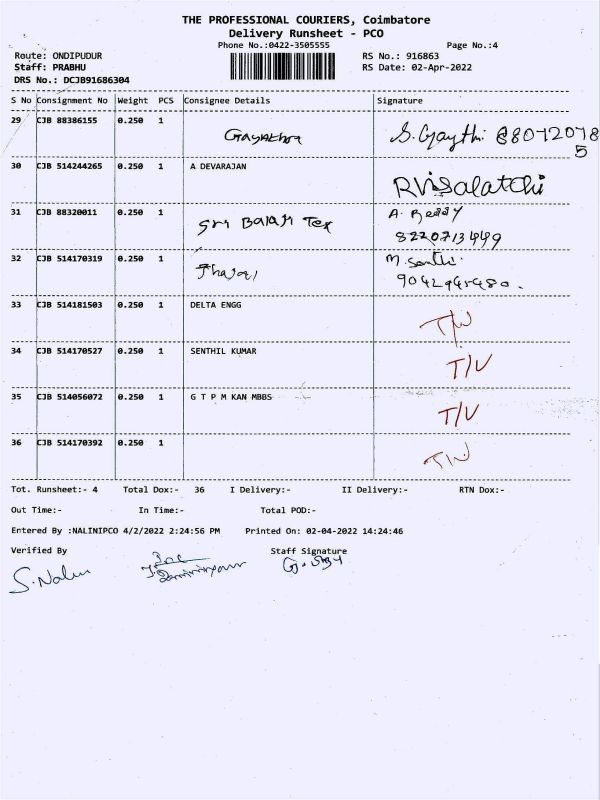 THE PROFESSIONAL COURIERS, Coimbatore
Delivery Runsheet - PCO
Phone No.:0422-3505555 Page No.:4
Route: ONDIPUDUR RS No.: 916863
Staff: PRABHU RS Date: 02-Apr-2022
DRS No.: DCJB91686304
S No Consignment No Weight PCS Consignee Details Signature
29 CJB 88386155 0.250 1 Gayathri S. Gaythi
30 CJB 514244265 0.250 1 A DEVARAJAN RVisalatchi
31 CJB 88320011 0.250 1 Sri Balaji Tex A. Reddy
8220713449
32 CJB 514170319 0.250 1 M. Santhi
33 CJB 514181503 0.250 1 DELTA ENGG T/W
34 CJB 514170527 0.250 1 SENTHIL KUMAR T/V
35 CJB 514056072 0.250 1 G T P M KAN MBBS T/V
36 CJB 514170392 0.250 1 T/W
Tot. Runsheet:- 4 Total Dox:- 36 I Delivery:- II Delivery:- RTN Dox:-
Out Time:- In Time:- Total POD:-
Entered By :NALINIPCO 4/2/2022 2:24:56 PM Printed On: 02-04-2022 14:24:46
Verified By Staff Signature
S. Nalini